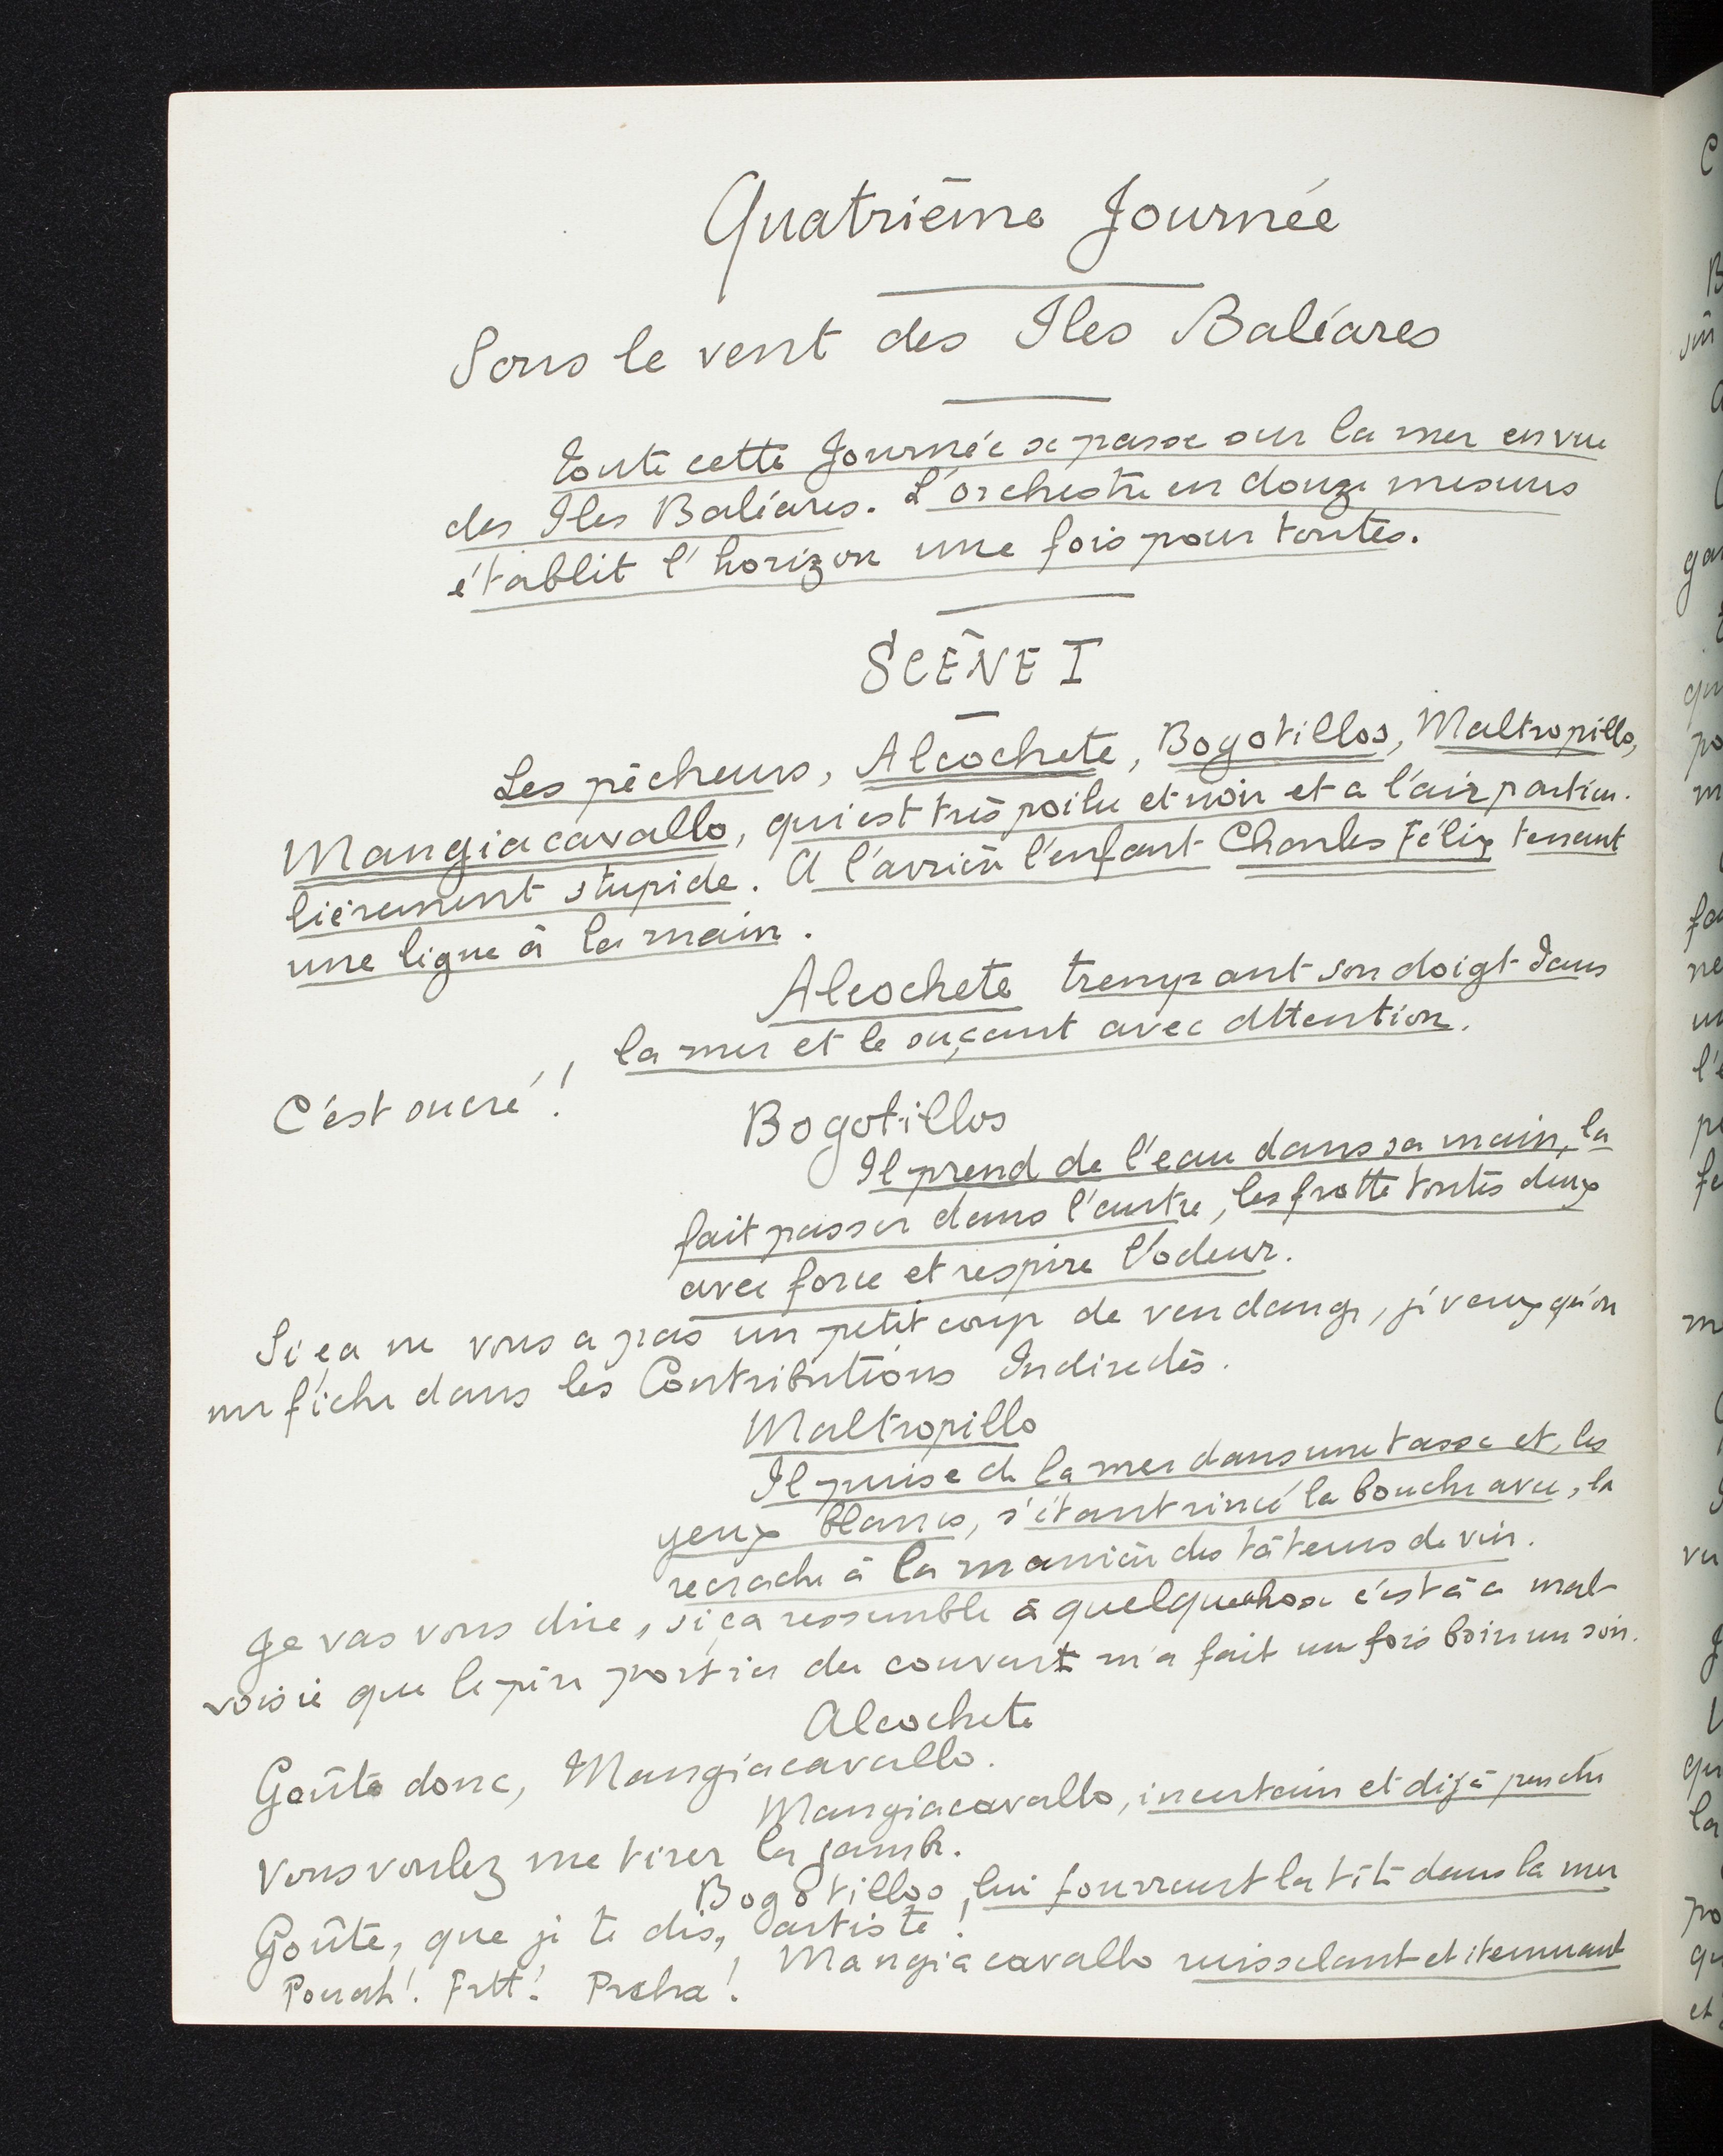 Quatrième Journée
Sous le vent des Iles Baléares
Toute cette Journée se passe sur la mer en vue
des Iles Baléares. L'orchestre en douze mesures
établit l'horizon une fois pour toutes.
SCÈNE I
Les pêcheurs, Alcochete, Bogotillos, Maltropillo,
Mangiacavallo, qui est très poilu et noir et a l'air particu-
lièrement stupide. A l'arrière l'enfant Charles Félix tenant
une ligne à la main.
Alcochete trempant son doigt dans
la mer et le suçant avec attention.
C'est sucré !
Bogotillos
Il prend de l'eau dans sa main, la
fait passer dans l'autre, les frotte toutes deux
avec force et respire l'odeur.
Si ça ne vous a pas un petit coup de vendange, je veux qu'on
me fiche dans les Contributions Indirectes.
Maltropillo
Il puise de la mer dans une tasse et, les
yeux blancs, s'étant rincé la bouche avec, la
recrache à la manière des tâteurs de vin.
Je vas vous dire, si ça ressemble à quelquechose c'est à ce mal-
voisie que le père portier du couvent m'a fait une fois boire un soir.
Alcochete
Goûte donc, Mangiacavallo.
Mangiacavallo, incertain et déjà penché
Vous voulez me tirer la jambe.
Bogotillos, lui fourrant la tête dans la mer
Goûte, que je te dis, artiste !
Mangiacavallo ruisselant et éternuant
! Frtt !